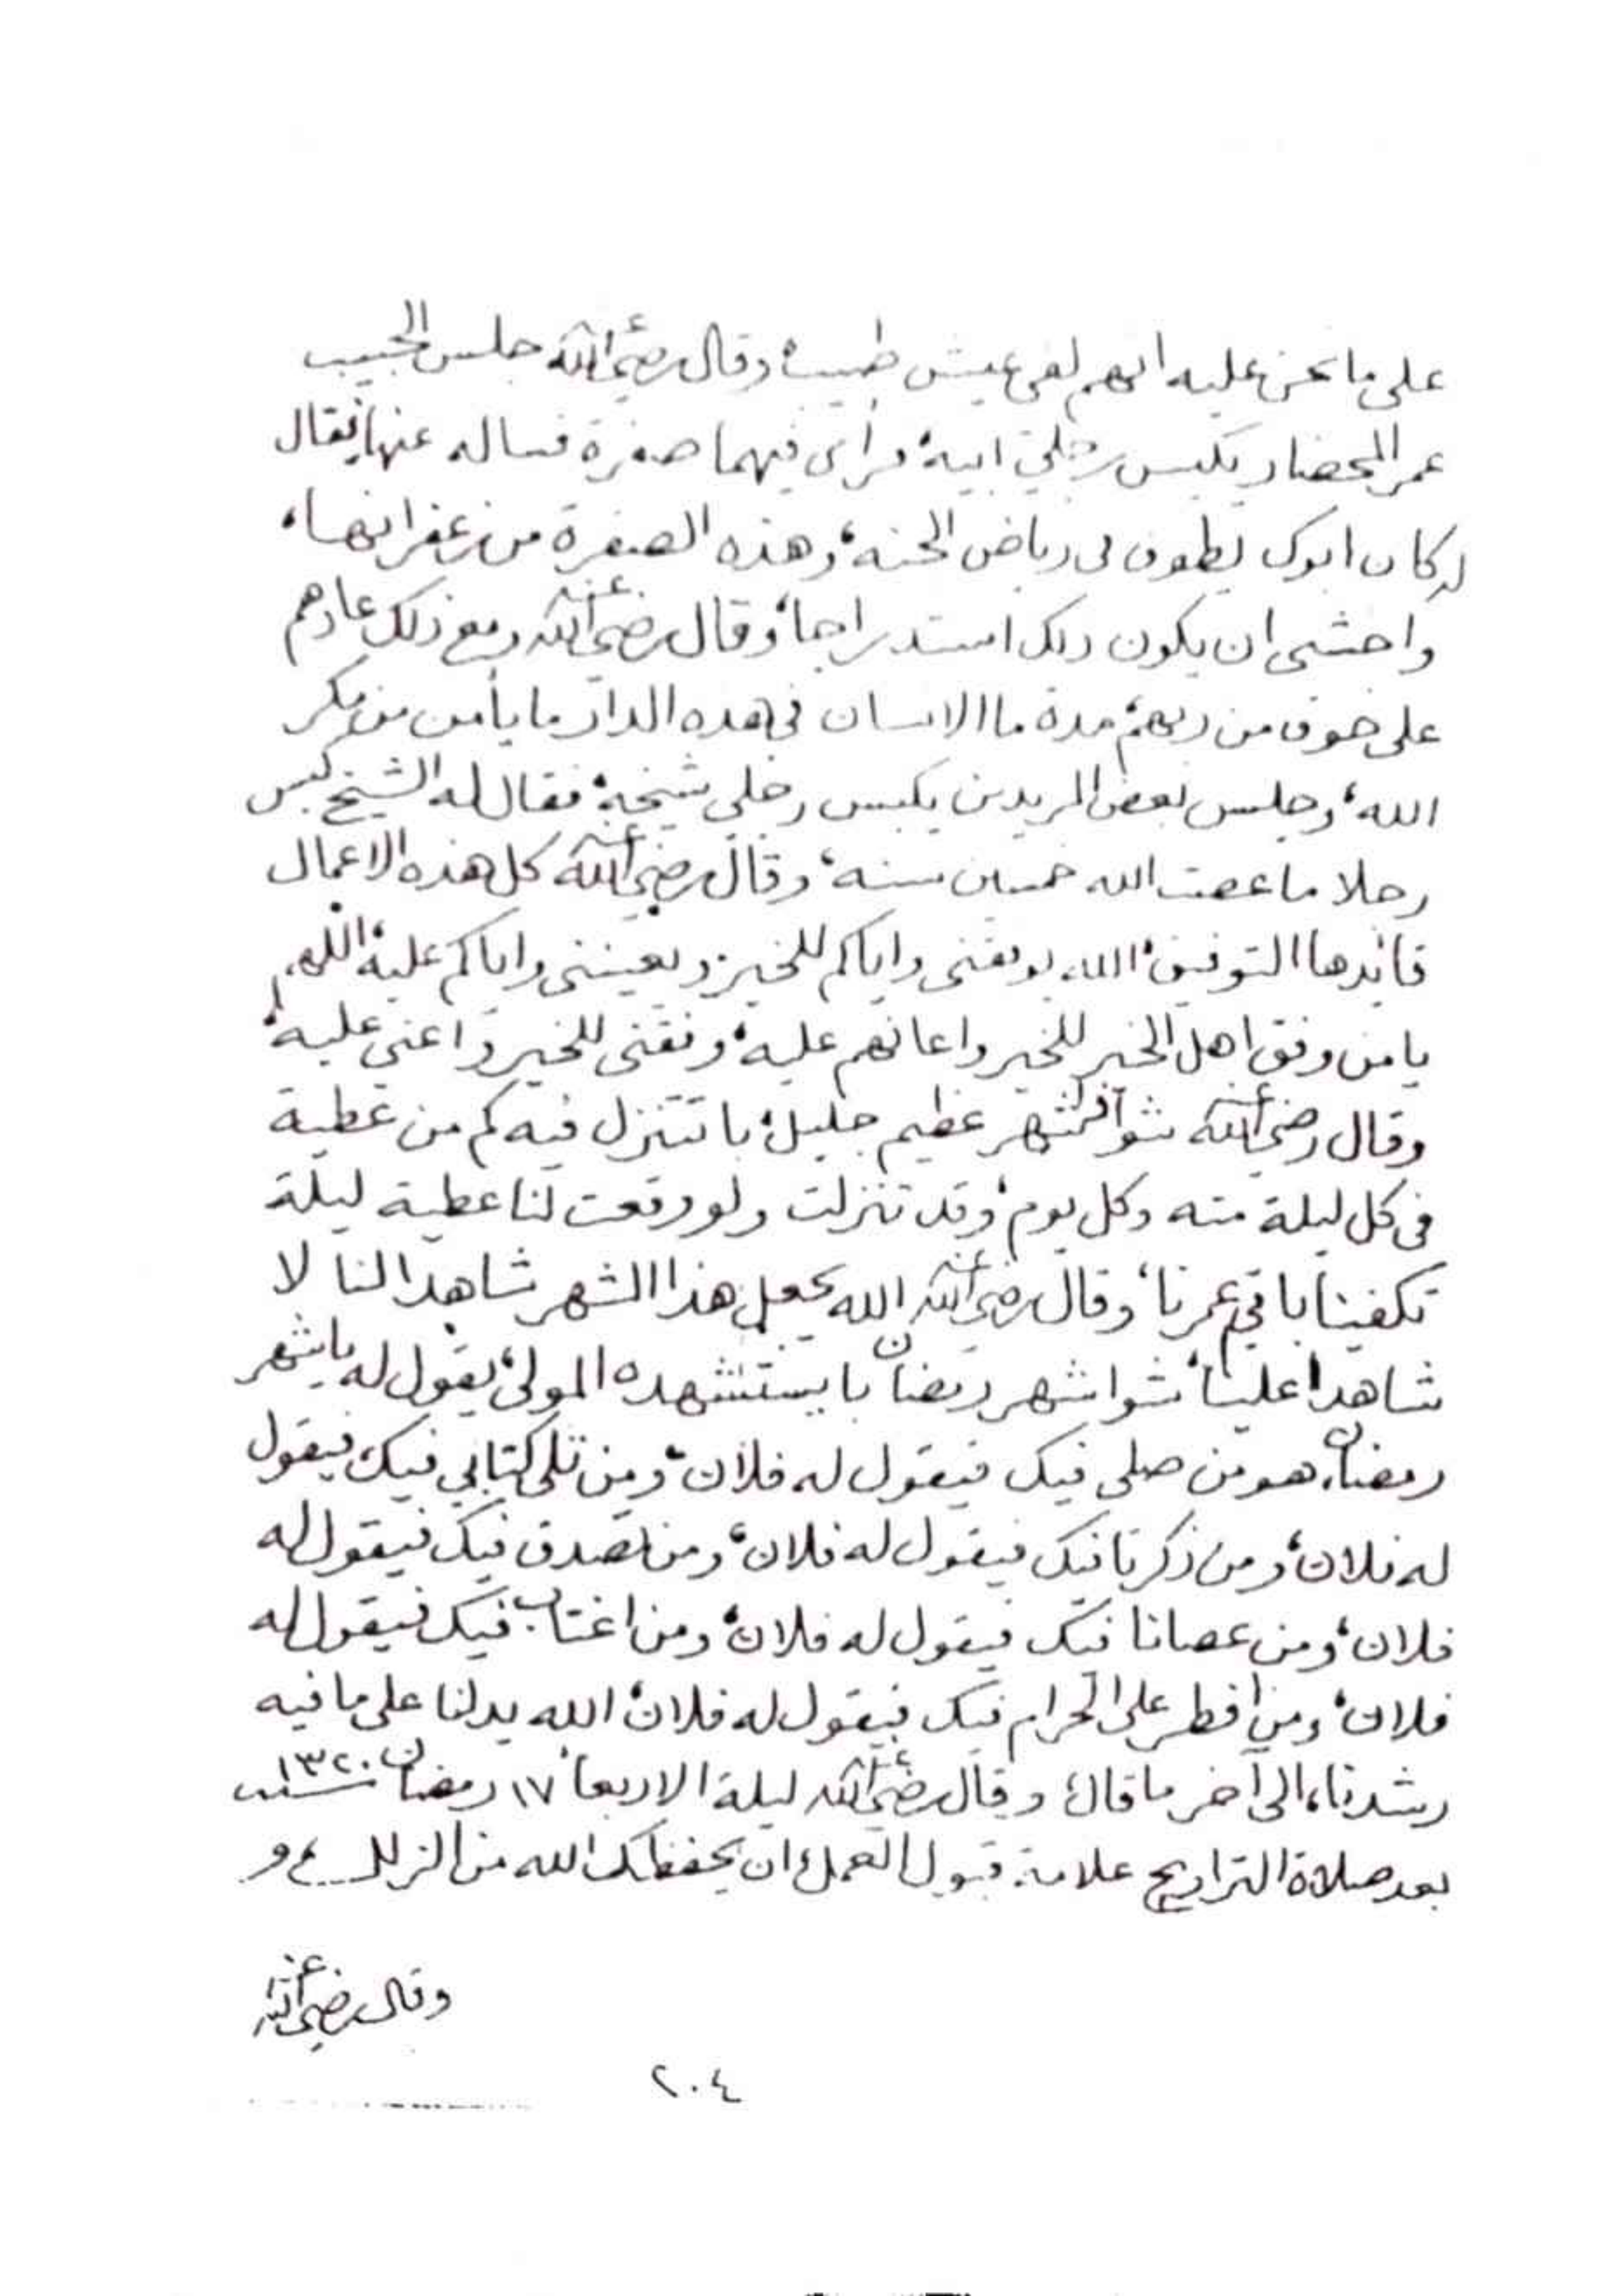 على ما نحن عليه انهم لفي عيش طيب، وقال رضي الله عنه جلس الحبيب
عمر المحضار يكبس رجلي ابيه، فرأى فيهما صفرة فساله عنها، فقال
له كان ابوك يطوف في رياض الجنه، وهذه الصفرة من زعفرانها،
واخشى ان يكون ذلك استدراجا، وقال رضي الله عنه ومع ذلك عادهم
على خوف من ربهم، مدة ما الانسان في هذه الدار ما يأمن من مكر
الله، وجلس بعض المريدين يكبس رجلي شيخه، فقال له الشيخ كبس
رجلا ما عصت الله خمسين سنه، وقال رضي الله عنه كل هذه الاعمال
قائدها التوفيق، الله يوفقني واياكم للخير ويعينني واياكم عليه، اللهم
يا من وفق اهل الخير للخير واعانهم عليه، وفقني للخير واعني عليه،
وقال رضي الله عنه شوا شهر عظيم جليل، با تتنزل فيه كم من عطية
في كل ليلة منه وكل يوم، وقد تنزلت ولو وقعت لنا عطية ليلة
تكفينا باقي عمرنا، وقال رضي الله عنه الله يجعل هذا الشهر شاهدا لنا لا
شاهدا علينا، شوا شهر رمضان با يستشهده المولى، يقول له يا شهر
رمضان، هو من صلى فيك فيقول له فلان، ومن تلى كتابي فيك، فيقول
له فلان، ومن ذكرنا فيك فيقول له فلان، ومن تصدق فيك فيقول له
فلان، ومن عصانا فيك فيقول له فلان، ومن اغتاب فيك فيقول له
فلان، ومن افطر على الحرام فيك فيقول له فلان، الله يدلنا على ما فيه
رشدنا، الى آخر ما قال، وقال رضي الله عنه ليلة الاربعاء ١٧ رمضان سنة ١٣٢٠
بعد صلاة التراويح علامة قبول العمل، ان يحفظك الله من الزلل
وقال رضي الله عنه
٢٠٤